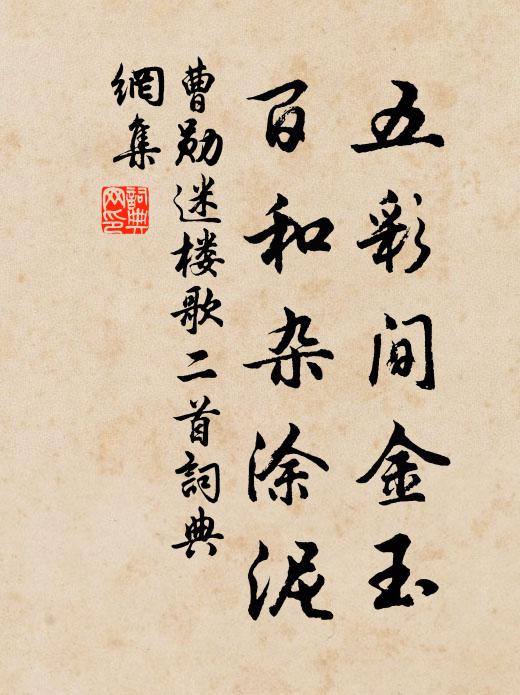 五彩间金玉
百和杂涂泥
曹勋迷楼歌二首詞典
網集
詞典
网印